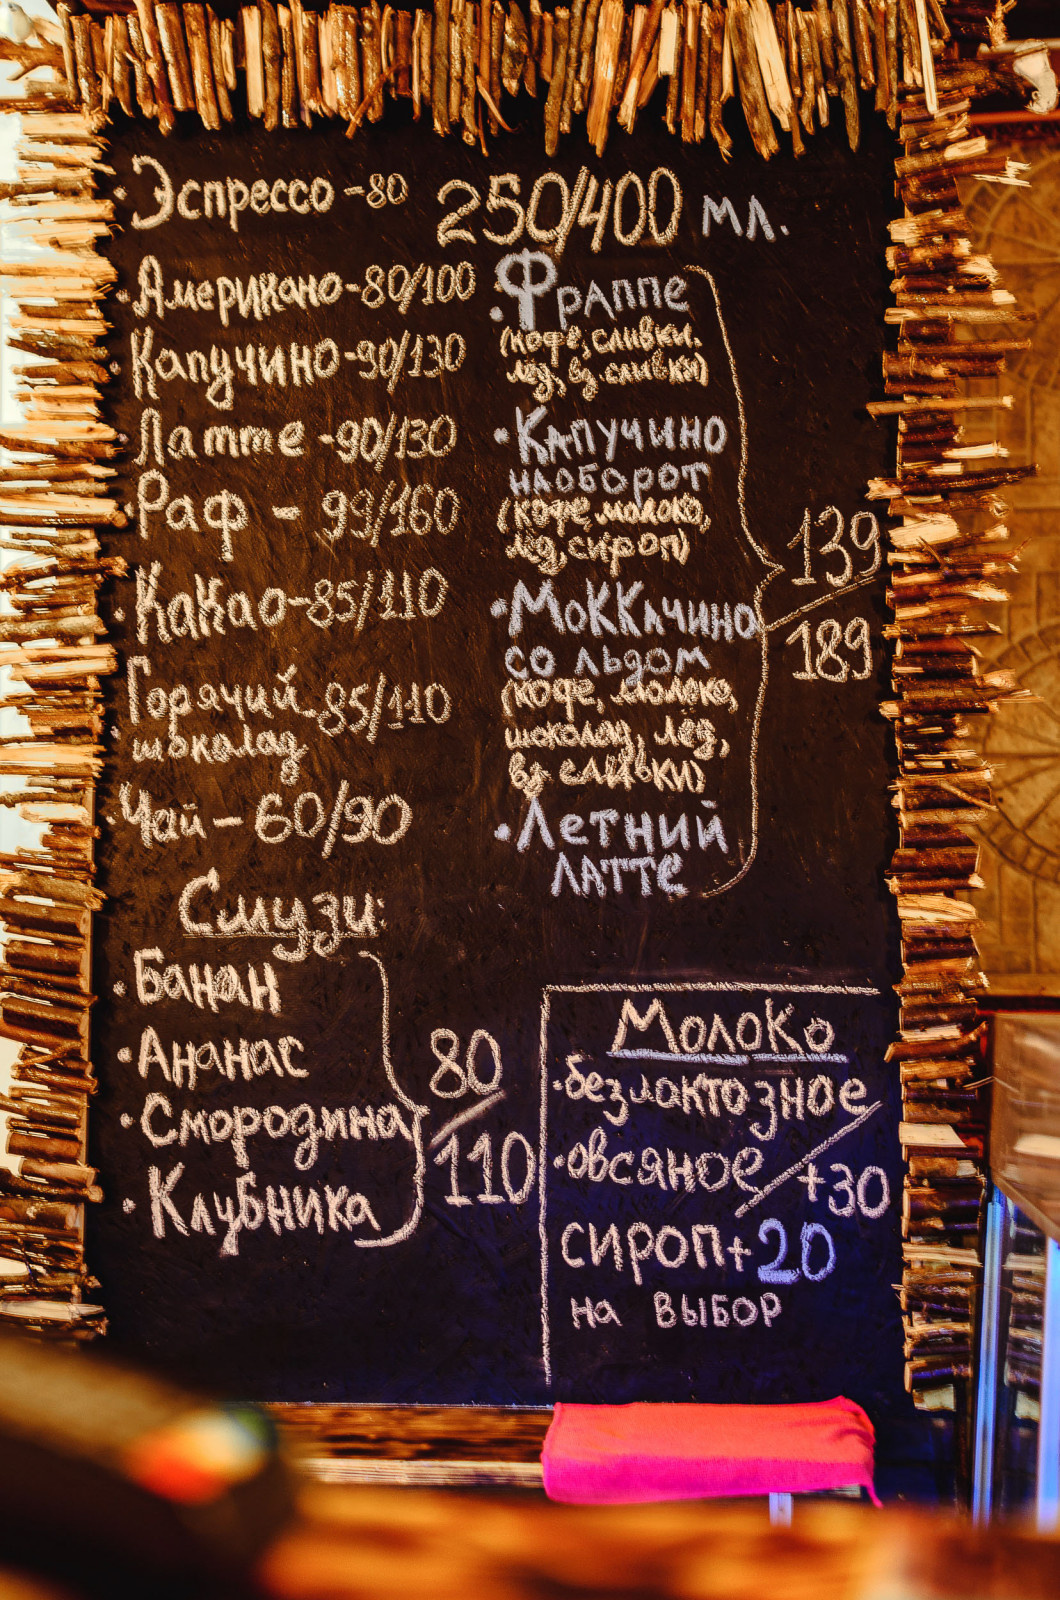 Эспрессо - 80
Американо - 80/100
Капучино - 90/130
Латте - 90/130
Раф - 99/160
Какао - 85/110
Горячий - 85/110
шоколад
Чай - 60/90
Смузи:
Банан
Ананас
Смородина
Клубника
80
110
250/400 мл.
Фраппе
(кофе, сливки.
лёд, вз. сливки)
Капучино
наоборот
(кофе, молоко,
лёд, сироп)
Моккачино
со льдом
(кофе, молоко,
шоколад, лёд,
вз сливки)
Летний
латте
139
189
Молоко
безлактозное
овсяное / +30
сироп + 20
на выбор